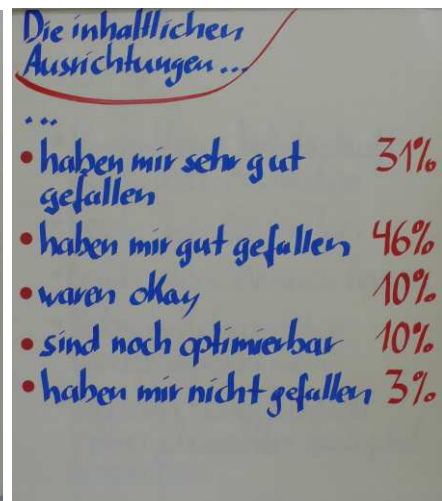 Die inhaltlichen
Ausrichtungen...
...
• haben mir sehr gut 31%
gefallen
• haben mir gut gefallen 46%
• waren okay 10%
• sind noch optimierbar 10%
• haben mir nicht gefallen 3%